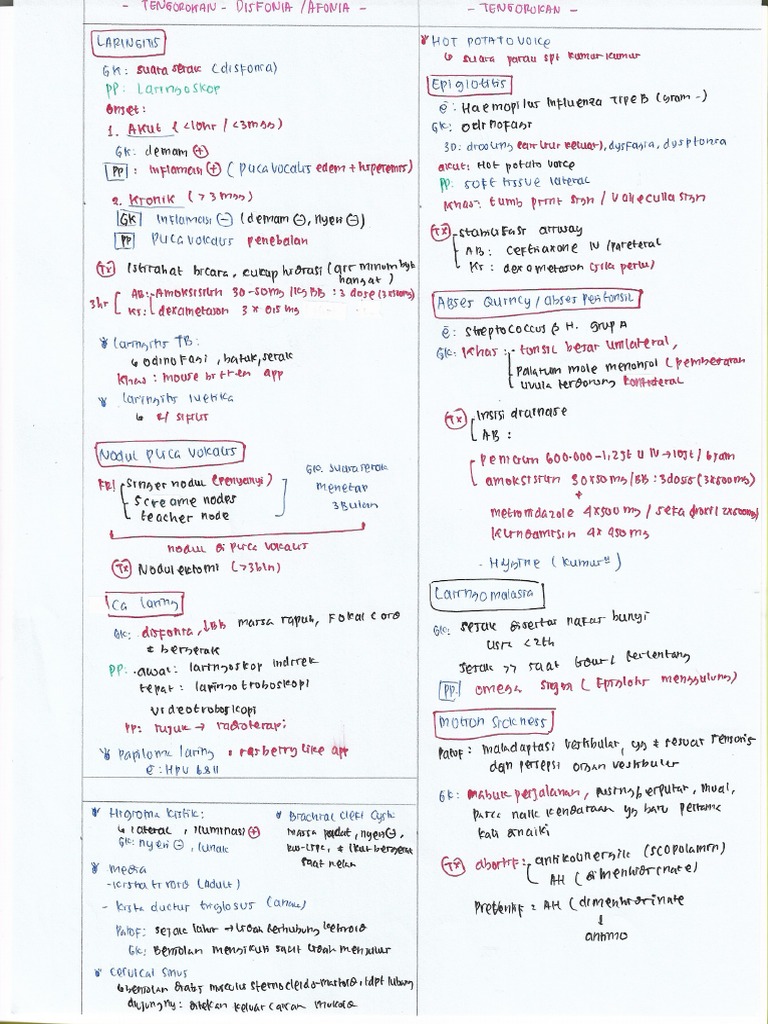 - TENGOROKAN - DISFONIA / AFONIA -
LARINGITIS
GK: suara serak (disfonia)
PP: Laringoskop
Onset:
1. Akut (<10hr / <3mgg)
GK: demam (+)
PP: inflamasi (+) (plica vocalis edem + hiperemis)
2. Kronik (>3 mgg)
GK inflamasi (-) (demam (-), nyeri (-))
PP plica vokalis penebalan
Tx Istirahat bicara, cukup hidrasi (air minum
hangat)
3hr AB: Amoksisilin 30-50mg/kgBB : 3 dose (3x500mg)
KS: dexametason 3 x 0,5 mg
laringitis TB:
odinofasi, batuk, serak
khas: mouse bitten app
laringitis luetika
e/ sifilis
Nodul plica vokalis
FR! singer nodul (penyanyi)
screame nodes
teacher node
GK. suara serak
menetap
3 bulan
nodul di plica vokalis
Tx Nodulektomi (>3bln)
Ca laring
GK: disfonia, ↓BB massa rapuh,
berserak
PP: awal: laringoskop indirek
tepat: laringotroboskopi
videotroboskopi
PP: rujuk → radioterapi
Papiloma laring : rasberry like app
E: HPV 6 & 11
Higroma kistik:
lateral, iluminasi (+)
GK: nyeri (-), lunak
Brachial cleft cyst
massa padat, nyeri (-),
saat nelan
media
- kista tiroid (adult)
- kista ductus tiroglosus (anak)
Patof: sejak lahir → lidah terhubung
GK: Benjolan mengikuti saat lidah menjulur
cervical sinus
benjolan diatas musculus sternocleido-mastoid, tdpt lubang
diujungny: ditekan keluar cairan mukoid
- TENGOROKAN -
HOT POTATO VOICE
suara parau spt kumur kumur
Epiglotitis
E: Haemopilus Influenza Tipe B (Gram -)
GK: odinofasi
3D: drooling (air liur keluar), dysfagia, dysphonia
akut: Hot potato voice
PP: soft tissue lateral
khas: tumb print sign / vallecula sign
Tx stabilisasi airway
AB: Ceftriaxone IV / parenteral
KS: dexametason (jika perlu)
Abses Quincy / abses peritonsil
E: streptococcus β H. grup A
GK: khas: - tonsil besar unilateral,
palatum mole menonjol (pembesaran
uvula terdorong kontralateral
Tx Insisi drainase
AB:
penicilin 600.000-1,2jt u IV → 10jt /
amoksisilin 30x50mg/BB : 3 dosis (3x500mg)
+
metronidazole 4x500mg / sefadroxil 2x500mg)
klindamisin 4x450mg
- Hygine (kumur²)
Laringomalasia
GK: serak disertai nafas bunyi
usia <2th
serak >> saat tidur terlentang
PP: omega sign (Epiglotis menggulung)
Motion sickness
Patof: maladaptasi vestibular, yg ≠ sesuai sensoris
dgn persepsi organ vestibuler
GK: mabuk perjalanan, pusing berputar, mual,
pasca naik kendaraan yg baru pertama
kali dinaiki
Tx abortif: antikolinergik (scopolamin)
AH (dimenhidrinate)
Preventif = AH (dimenhidrinate
↓
antimo